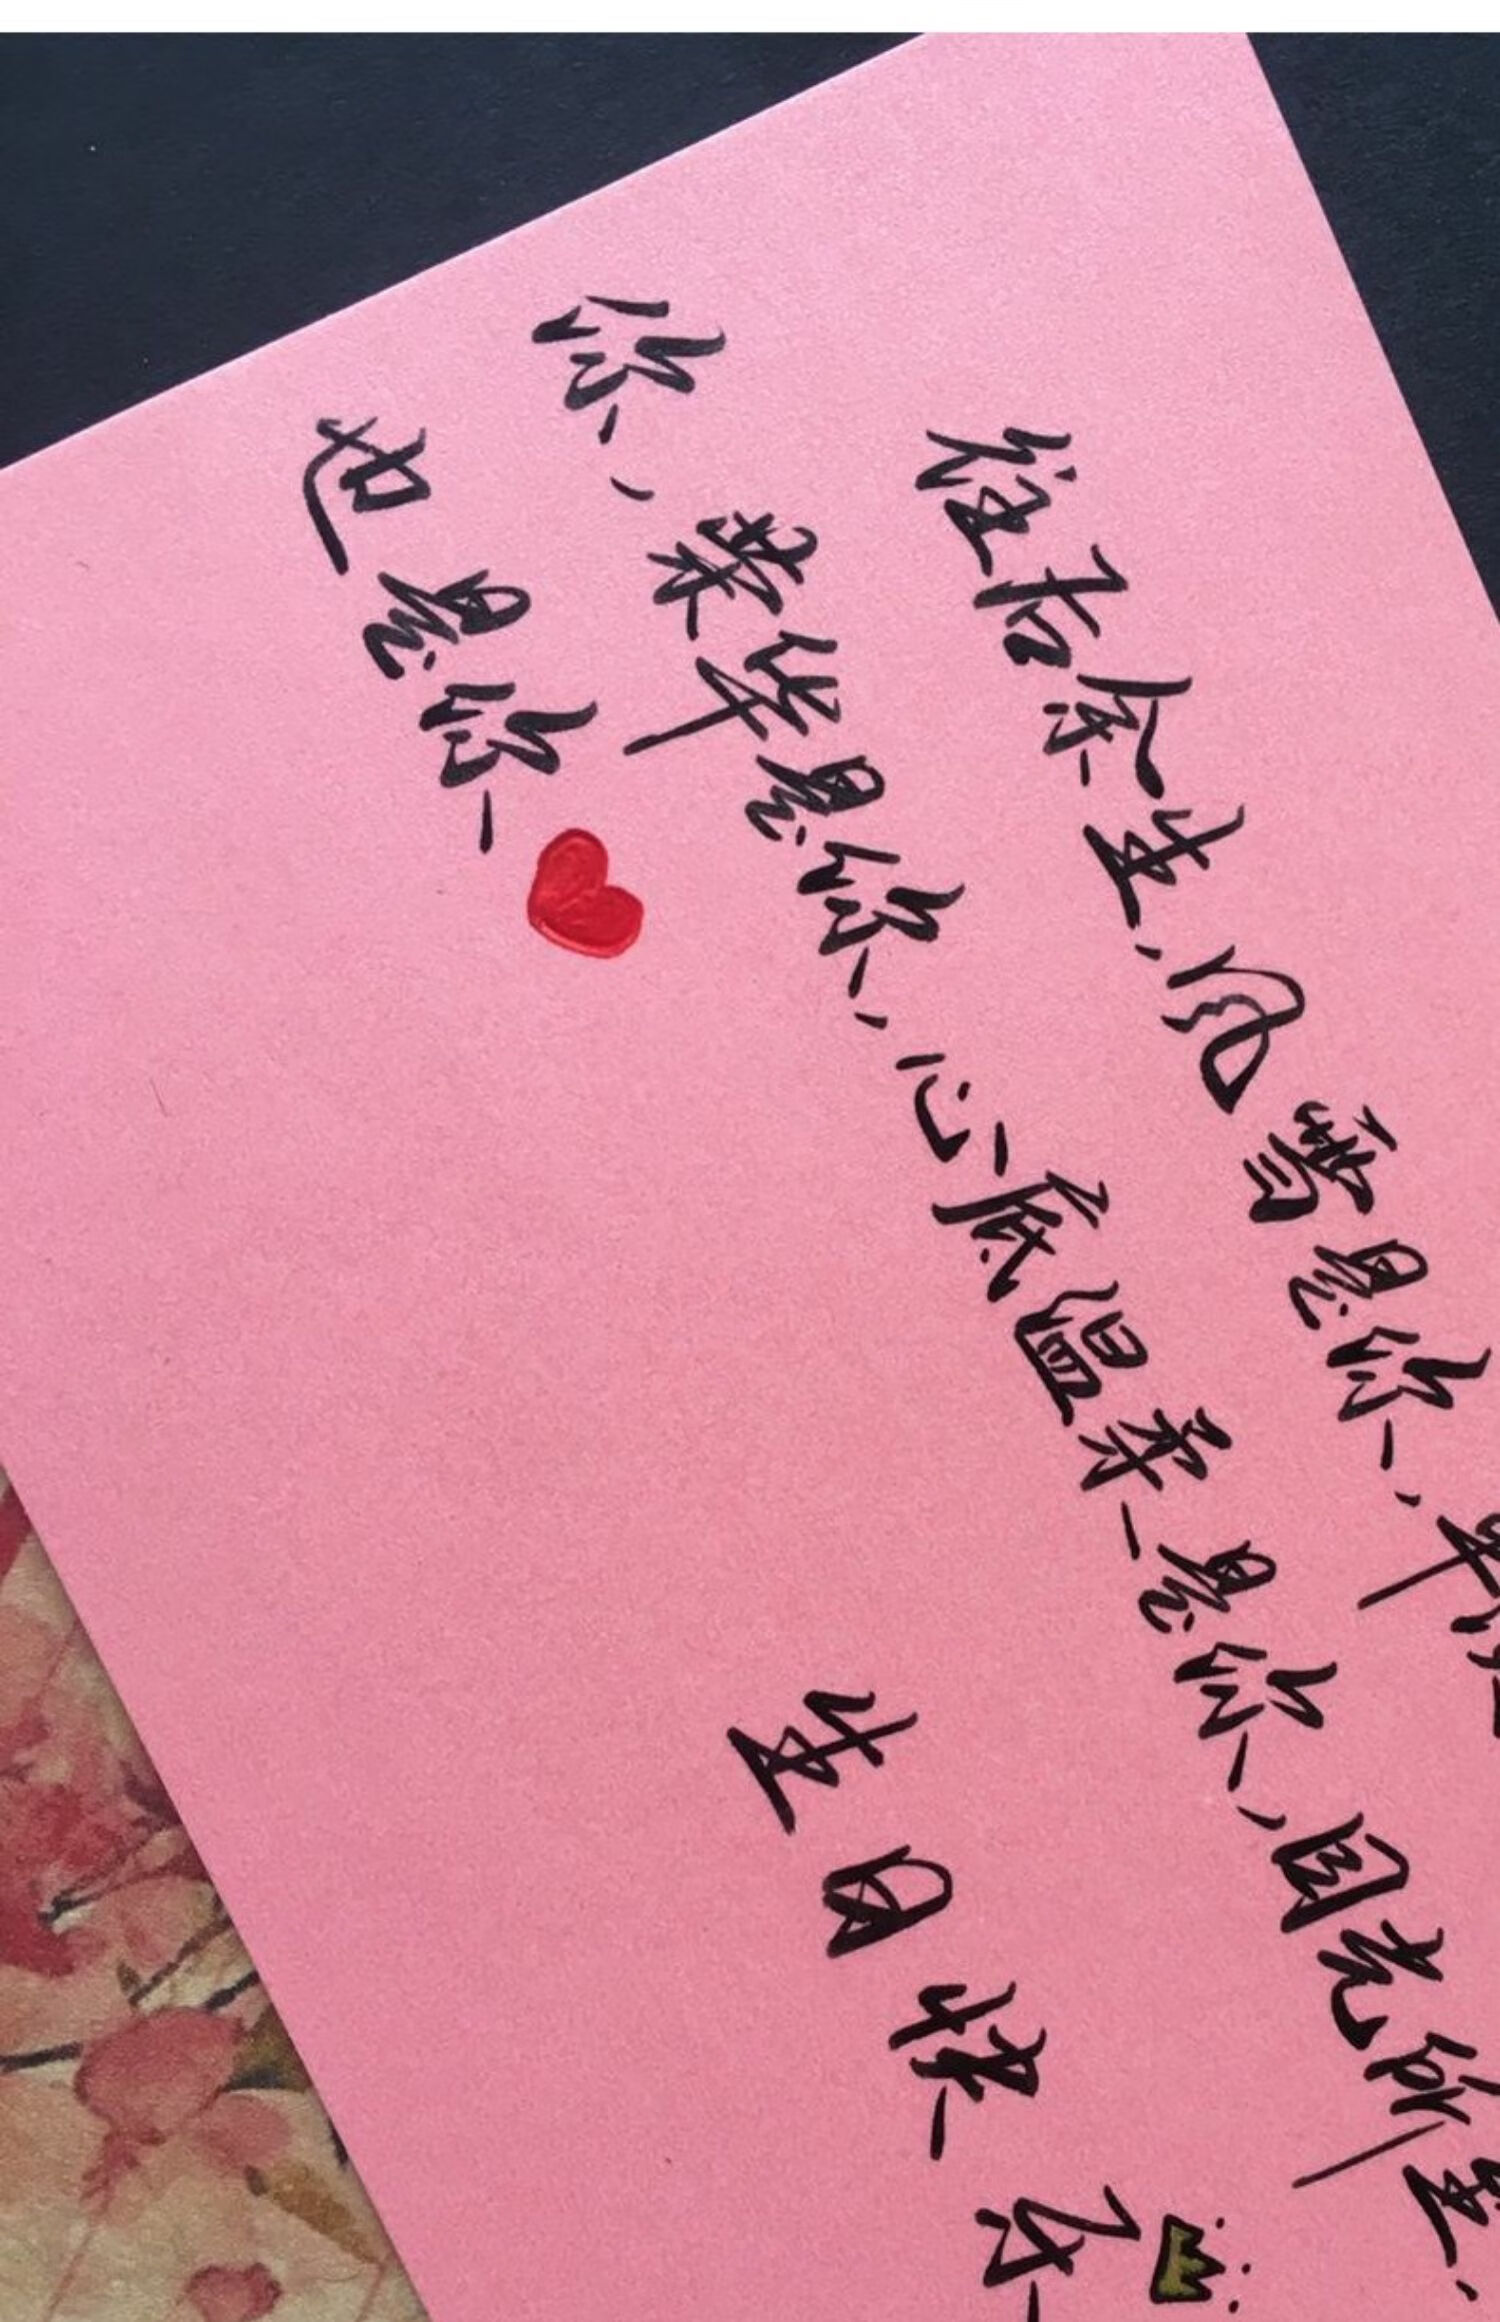 往后余生,风雪是你,平淡
你,荣华是你,心底温柔是你,目光所至,
也是你
生日快乐